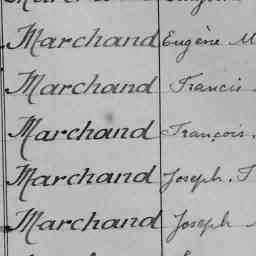 Marchand Eugène M
Marchand Francis
Marchand François.
Marchand Joseph. T
Marchand Joseph